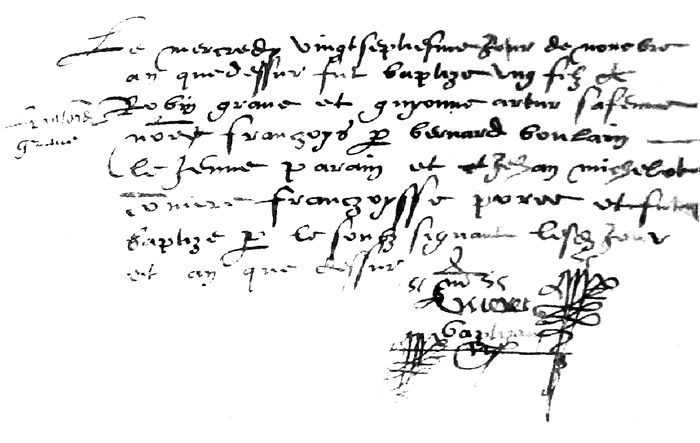 Le mercredy vingtseptiesme Jour de novēbre
an que dessur fut baptize ung filz de
Robin grave et guyonne artur sa femme
nōme francoys p bernard boulain
le Jenne parain et Jehan michelot
cōmere francoysse poree et fut
baptize p le soubz signant lesdz Jour
et an que dessur
grave
baptiza